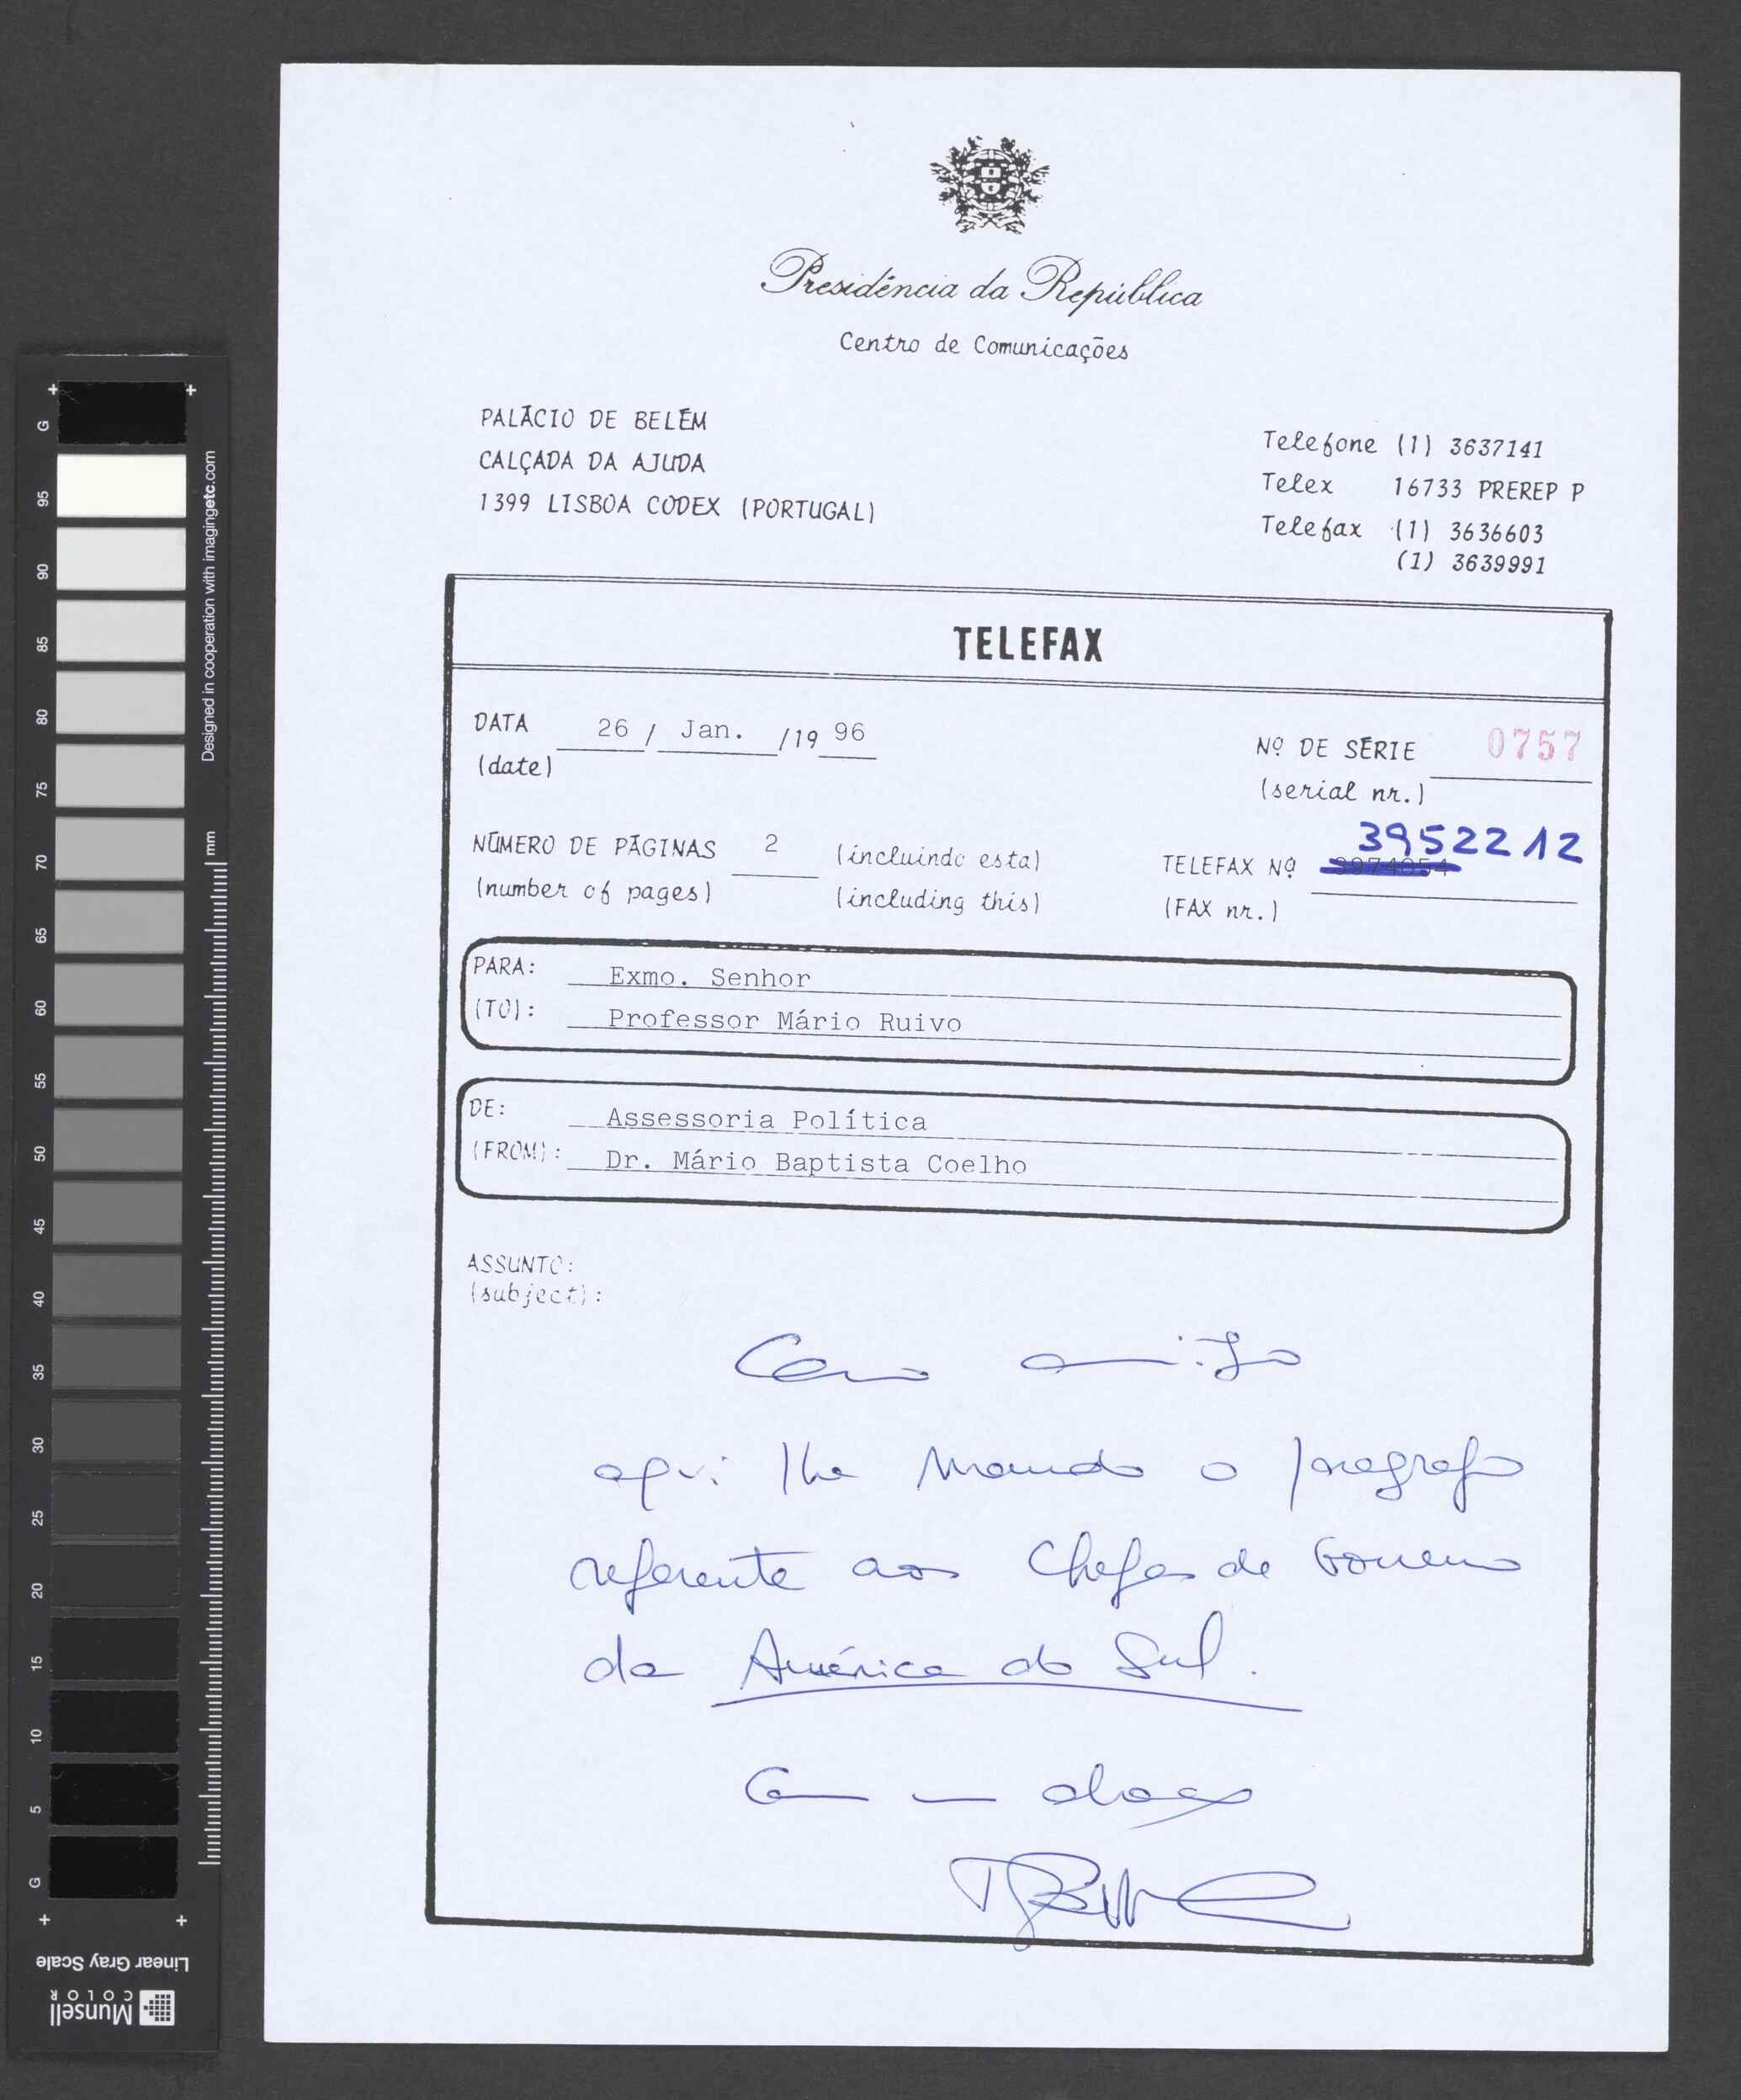 Presidência da República
Centro de Comunicações
PALÁCIO DE BELÉM
CALÇADA DA AJUDA
1399 LISBOA CODEX (PORTUGAL)
Telefone (1) 3637141
Telex 16733 PREREP P
Telefax (1) 3636603
(1) 3639991
TELEFAX
DATA 26 / Jan. /19 96
(date)
Nº DE SÉRIE 0757
(serial nr.)
NÚMERO DE PÁGINAS 2 (incluindo esta)
(number of pages) (including this)
3952212
TELEFAX Nº
(FAX nr.)
PARA: Exmo. Senhor
(TO): Professor Mário Ruivo
DE: Assessoria Política
(FROM): Dr. Mário Baptista Coelho
ASSUNTO:
(subject):
Caro amigo
aqui lhe mando o paragrafo
referente aos Chefes de Governo
da América do Sul.
Com um abraço
G 95 90 85 80 75 70 65 60 55 50 45 40 35 30 25 20 15 10 5 G
Designed in cooperation with imagingetc.com
mm
Linear Gray Scale
Munsell
COLOR